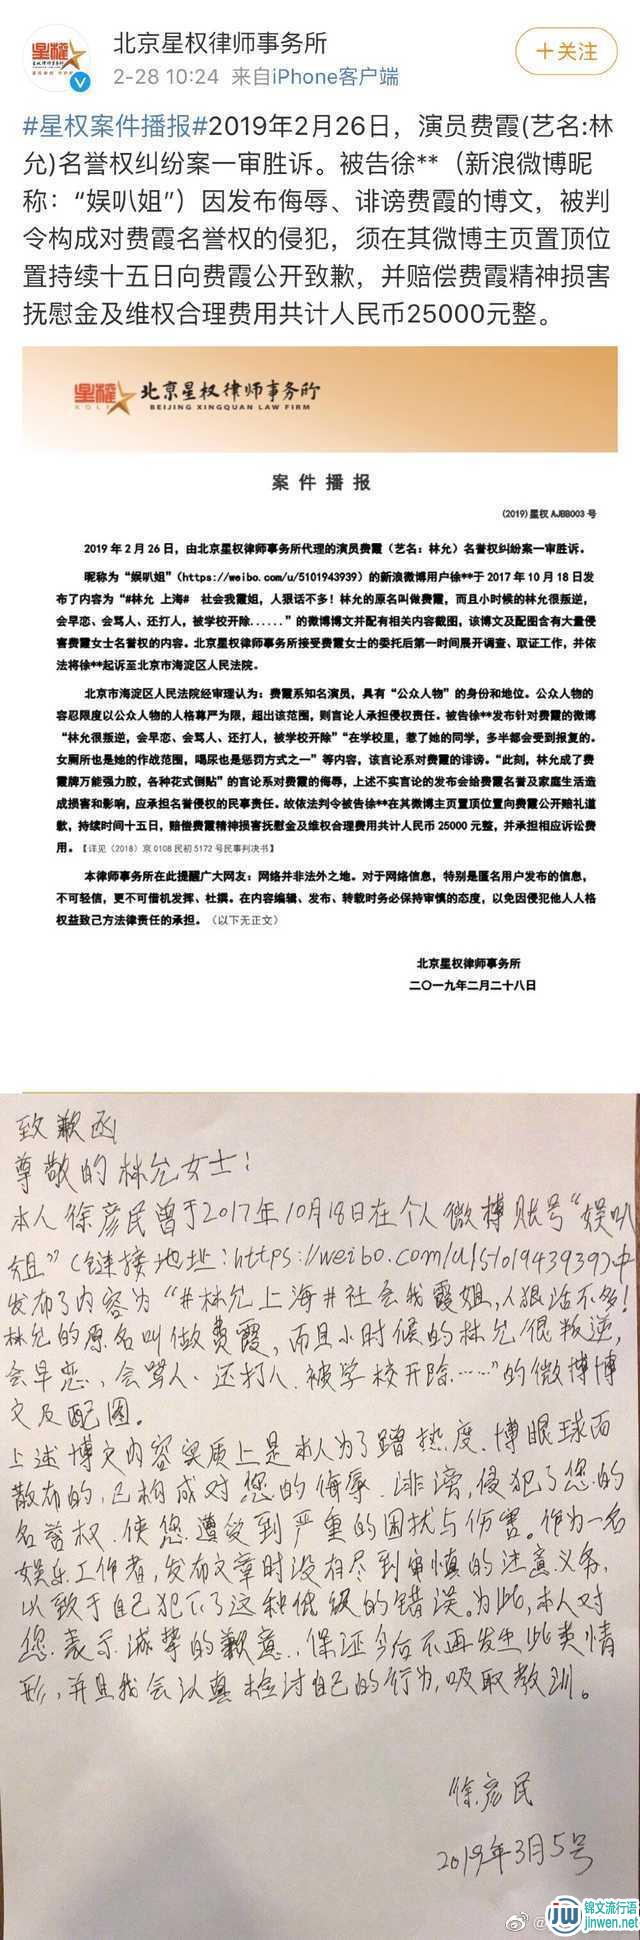 北京星权律师事务所
+关注
2-28 10:24 来自iPhone客户端
#星权案件播报#2019年2月26日，演员费霞(艺名:林
允)名誉权纠纷案一审胜诉。被告徐**（新浪微博昵
称：“娱叭姐”）因发布侮辱、诽谤费霞的博文，被判
令构成对费霞名誉权的侵犯，须在其微博主页置顶位
置持续十五日向费霞公开致歉，并赔偿费霞精神损害
抚慰金及维权合理费用共计人民币25000元整。
星權 北京星权律师事务所
BEIJING XINGQUAN LAW FIRM
案件播报
(2019)星权 AJBB003 号
2019 年 2 月 26 日，由北京星权律师事务所代理的演员费霞（艺名：林允）名誉权纠纷案一审胜诉。
昵称为“娱叭姐”（https://weibo.com/u/5101943939）的新浪微博用户徐**于 2017 年 10 月 18 日发
布了内容为“#林允 上海# 社会我霞姐，人狠话不多！林允的原名叫做费霞，而且小时候的林允很叛逆，
会早恋、会骂人、还打人，被学校开除......”的微博博文并配有相关内容截图，该博文及配图含有大量侵
害费霞女士名誉权的内容。北京星权律师事务所接受费霞女士的委托后第一时间展开调查、取证工作，并依
法将徐**起诉至北京市海淀区人民法院。
北京市海淀区人民法院经审理认为：费霞系知名演员，具有“公众人物”的身份和地位。公众人物的
容忍限度以公众人物的人格尊严为限，超出该范围，则言论人承担侵权责任。被告徐**发布针对费霞的微博
“林允很叛逆，会早恋、会骂人、还打人，被学校开除”“在学校里，惹了她的同学，多半都会受到报复的。
女厕所也是她的作战范围，喝尿也是惩罚方式之一”等内容，该言论系对费霞的诽谤。“此刻，林允成了费
霞牌万能强力胶，各种花式倒贴”的言论系对费霞的侮辱，上述不实言论的发布会给费霞名誉及家庭生活造
成损害和影响，应承担名誉侵权的民事责任。故依法判令被告徐**在其微博主页置顶位置向费霞公开赔礼道
歉，持续时间十五日，赔偿费霞精神损害抚慰金及维权合理费用共计人民币 25000 元整，并承担相应诉讼费
用。【详见（2018）京 0108 民初 5172 号民事判决书】
本律师事务所在此提醒广大网友：网络并非法外之地。对于网络信息，特别是匿名用户发布的信息，
不可轻信，更不可借机发挥、杜撰。在内容编辑、发布、转载时务必保持审慎的态度，以免因侵犯他人人格
权益致己方法律责任的承担。（以下无正文）
北京星权律师事务所
二〇一九年二月二十八日
致歉函
尊敬的林允女士！
本人徐彦民曾于2017年10月18日在个人微博账号“娱叭
姐”（链接地址：https://weibo.com/u/5101943939）中
发布了内容为“#林允上海#社会我霞姐，人狠话不多！
林允的原名叫做费霞，而且小时候的林允很叛逆，
会早恋、会骂人、还打人、被学校开除……”的微博博
文及配图。
上述博文内容实质上是本人为了蹭热度、博眼球而
散布的，已构成对您的侮辱、诽谤，侵犯了您的
名誉权，使您遭受到严重的困扰与伤害。作为一名
娱乐工作者，发布文章时没有尽到审慎的注意义务，
以致于自己犯下了这种低级的错误。为此，本人对
您表示诚挚的歉意，保证今后不再发生此类情
形，并且我会认真检讨自己的行为，吸取教训。
徐彦民
2019年3月5号
锦文流行语
jinwen.net